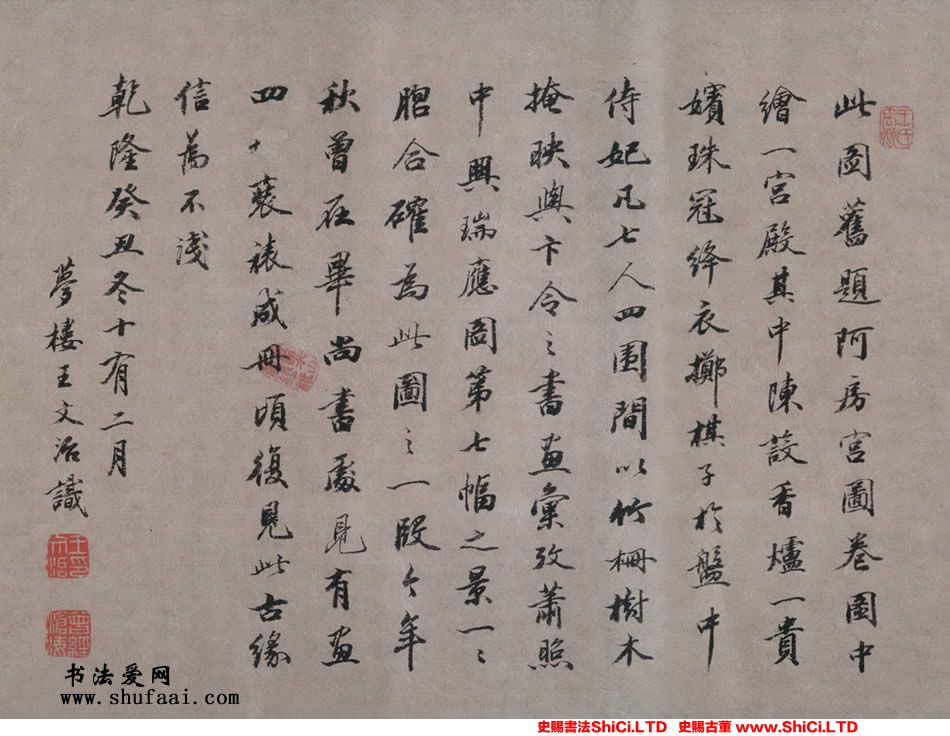 此圖舊題阿房宮圖卷圖中
繪一宮殿其中陳設香爐一貴
嬪珠冠絳衣擲棋子於盤中
侍妃凡七人四圍間以竹柵樹木
掩映與卞令之書畫彙攷蕭照
中興瑞應圖第七幅之景一〻
脗合確為此圖之一段今年
秋曾在畢尚書處見有畫
四十裘裱成冊頃復見此古緣
信為不淺
乾隆癸丑冬十有二月
夢樓王文治識
王文治印
曾經滄海
书法爱网
www.shufaai.com
史賜書法ShiCi.LTD 史賜古董 www.ShiCi.LTD